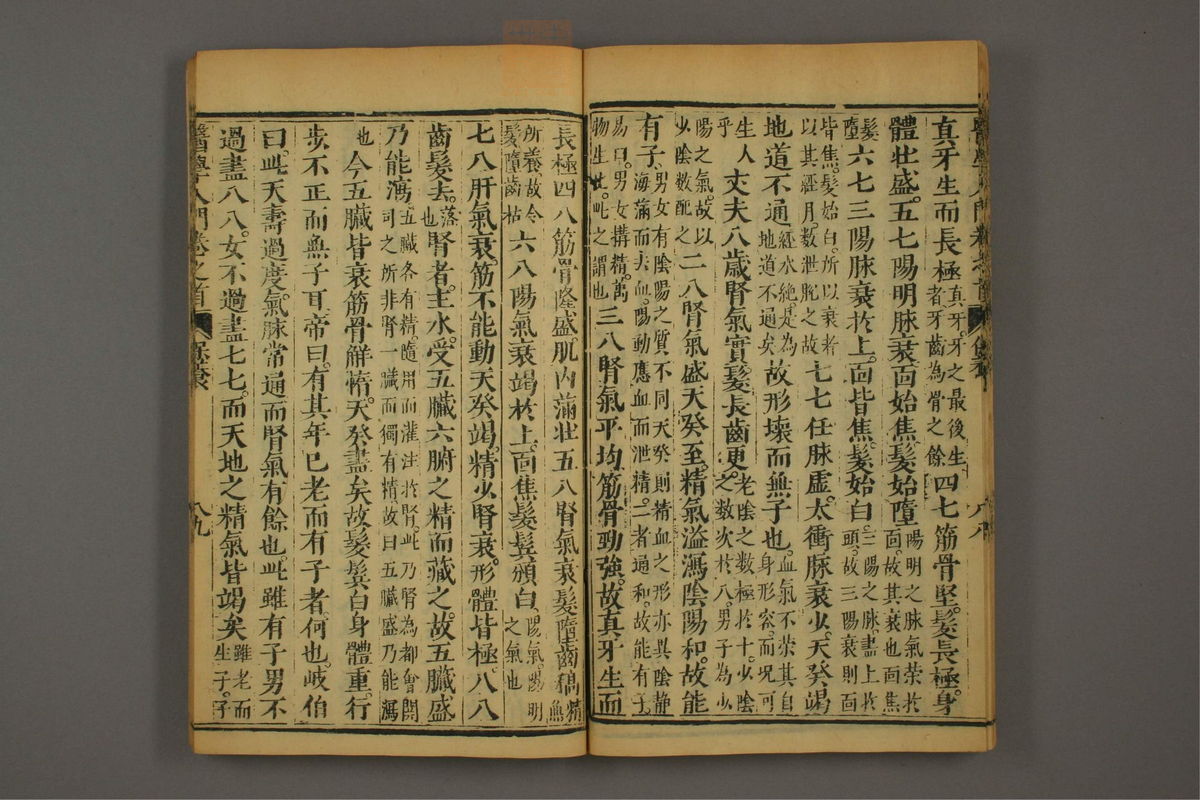 真牙生而長極真牙牙之最後生者牙齒為骨之餘四七筋骨堅髮長極身
體壯盛五七陽明脉衰面始焦髮始墮陽明之脉氣荣於面故其衰也面焦
髮墮六七三陽脉衰於上面皆焦髮始白三陽之脉盡上於頭故三陽衰則面
皆焦髮始白所以衰者以其經月數泄脫之故七七任脉虛太衝脉衰少天癸竭
地道不通經水絕是為地道不通矣故形壊而無子也血氣不荣其身形容而况可
生人乎丈夫八歲腎氣實髮長齒更老陰之數極於十少陰之數次於八男子為少
陽之氣故以少陰數配之二八腎氣盛天癸至精氣溢瀉陰陽和故能
有子男女有陰陽之質不同天癸則精血之形亦異陰静海滿而去血陽動應血而泄精二者通和故能有子
易曰男女搆精萬物生世此之謂也三八腎氣平均筋骨勁強故真牙生而
長極四八筋骨隆盛肌肉滿壯五八腎氣衰髮墮齒稿精無
所養故令髮墮齒枯六八陽氣衰竭於上面焦髮鬂頒白陽氣陽明之氣也
七八肝氣衰筋不能動天癸竭精少腎衰形體皆極八八
齒髮去落也腎者主水受五臟六腑之精而藏之故五臟盛
乃能瀉五臟各有精隨用而灌注於腎此乃腎為都會關司之所非腎一臟而獨有精故曰五臟盛乃能瀉
也今五臟皆衰筋骨觧惰天癸盡矣故髮鬂白身體重行
步不正而無子耳帝曰有其年已老而有子者何也岐伯
曰此天壽過度氣脉常通而腎氣有餘也此雖有子男不
過盡八八女不過盡七七而天地之精氣皆竭矣雖老而生子子
醫學入門卷之首
八九